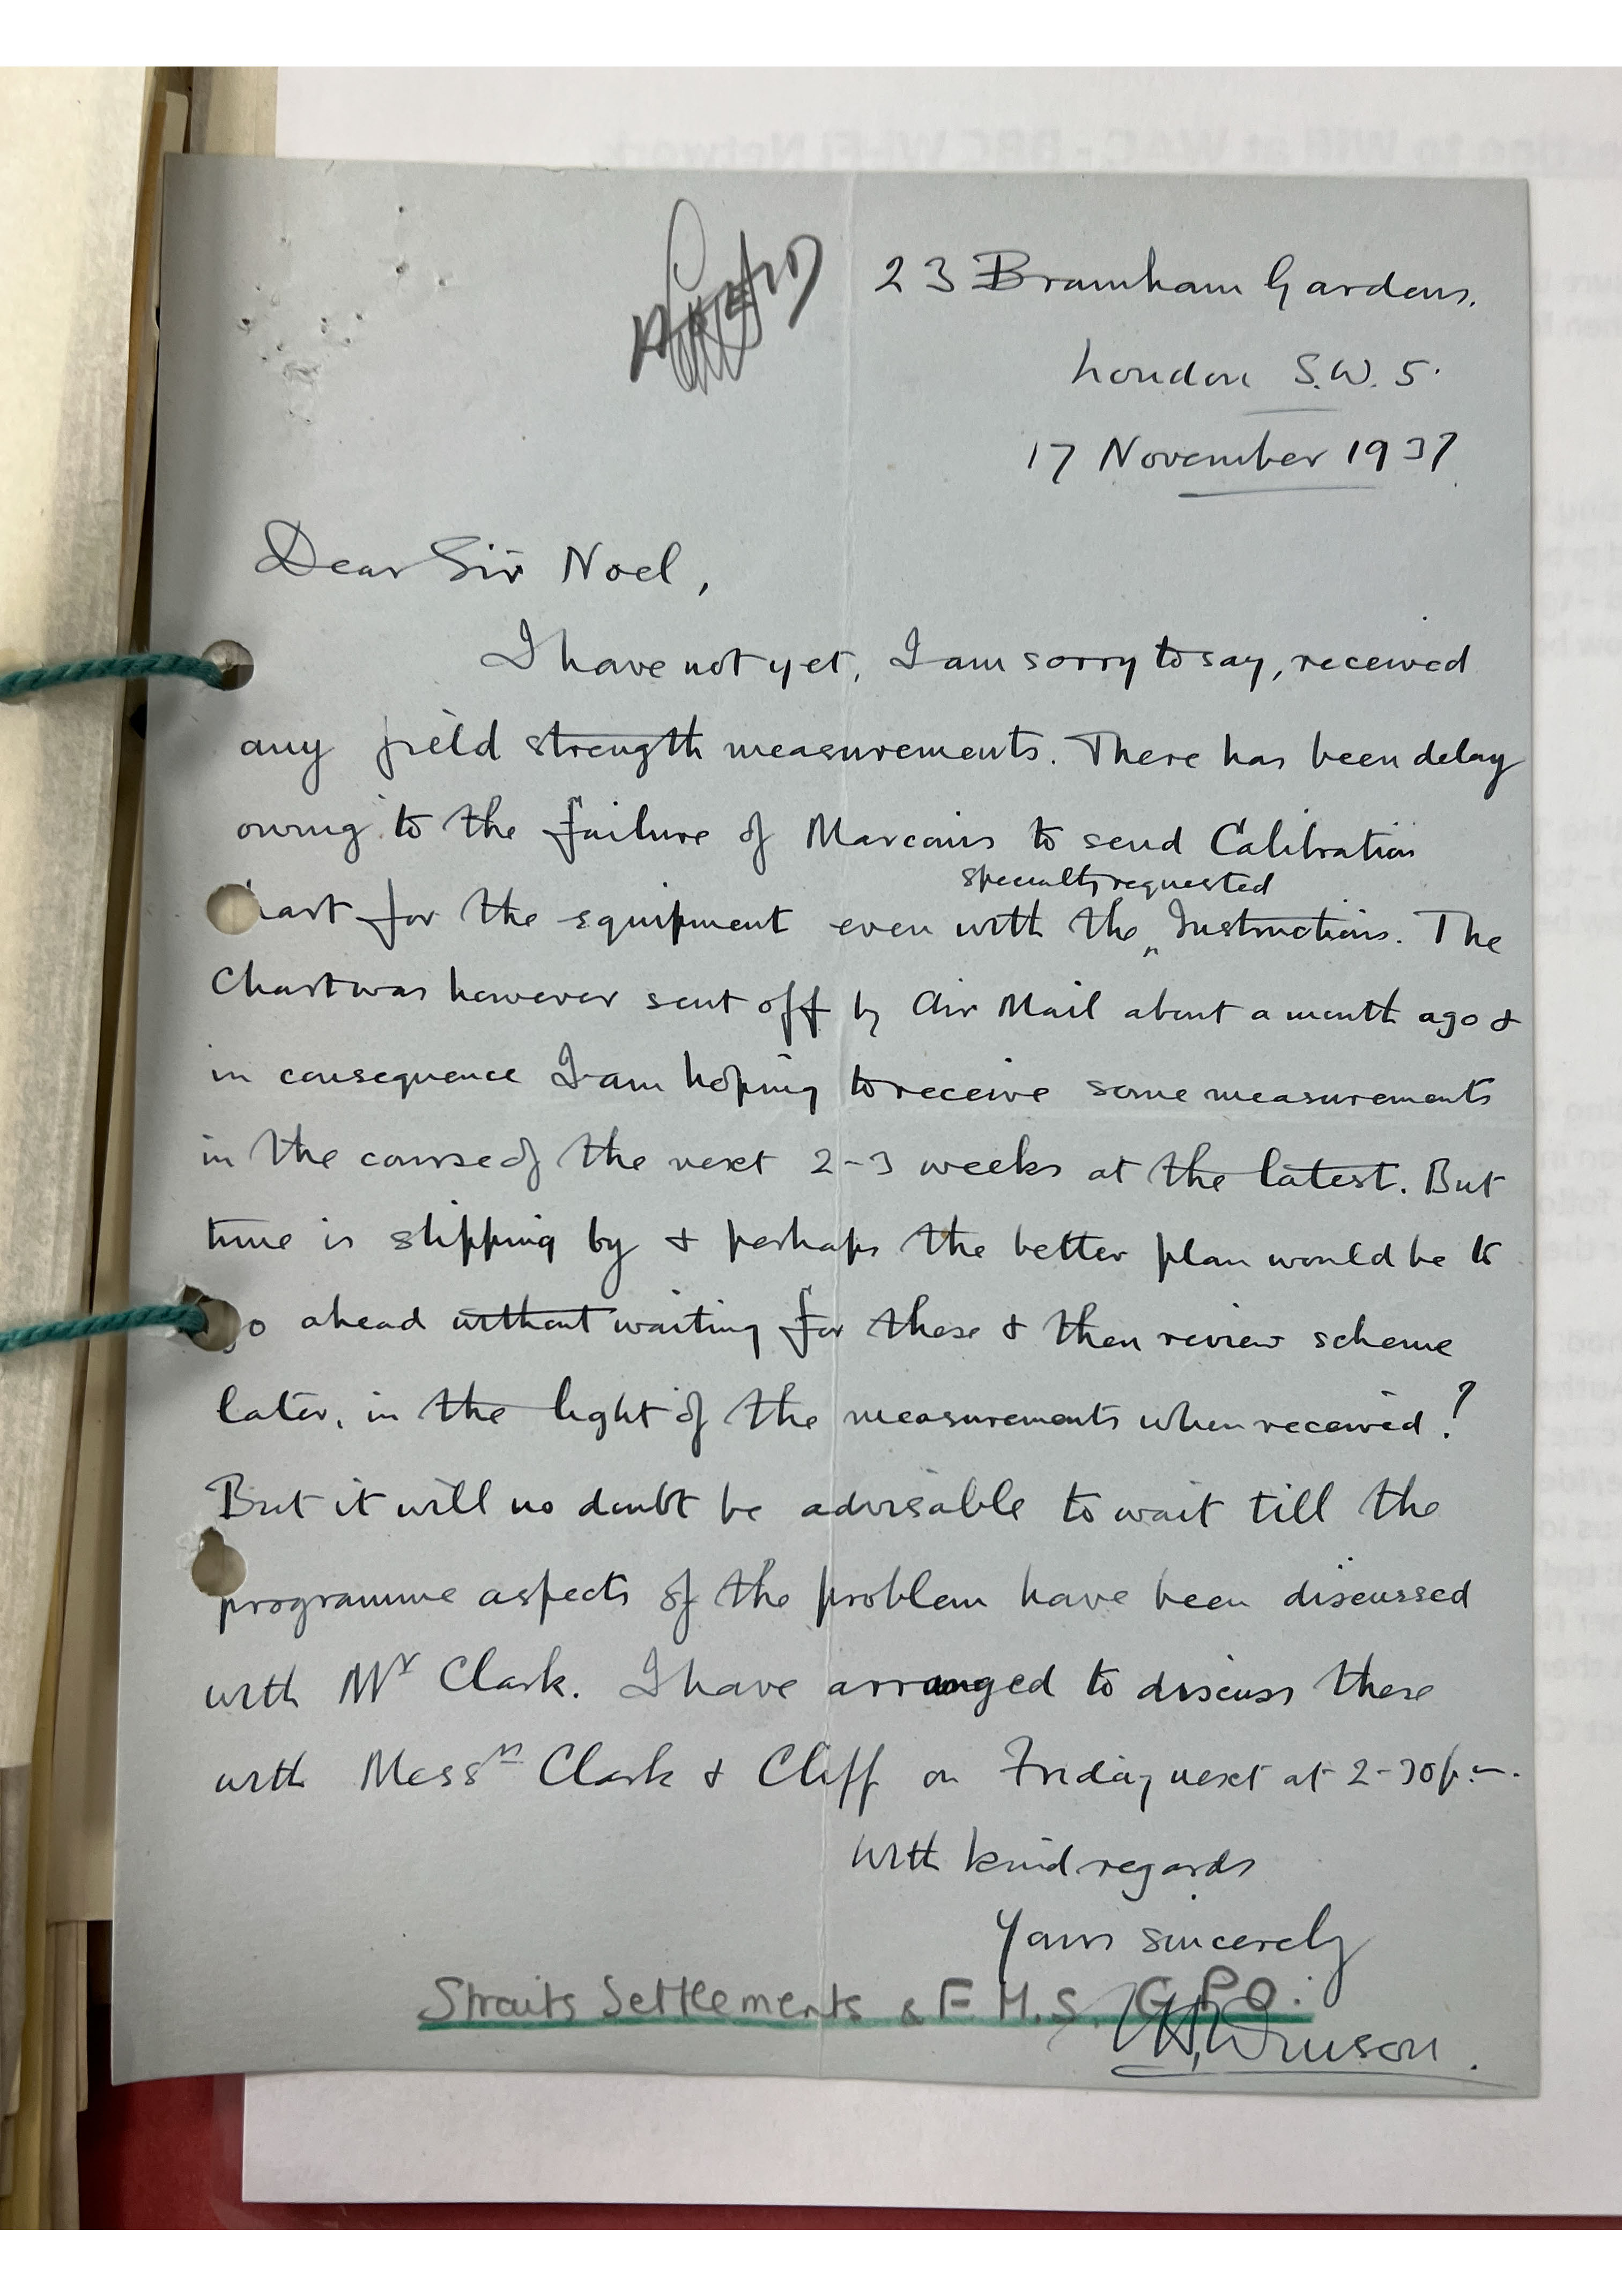 23 Bramham Gardens.
London S.W. 5.
17 November 1937.
Dear Sir Noel,
I have not yet, I am sorry to say, received
any field strength measurements. There has been delay
owing to the failure of Marconis to send Calibration
specially requested
hart for the equipment even with the Instructions. The
Chart was however sent off by Air Mail about a month ago &
in consequence I am hoping to receive some measurements
in the course of the next 2-3 weeks at the latest. But
time is slipping by & perhaps the better plan would be to
o ahead without waiting for these & then review scheme
later, in the light of the measurements when received?
But it will no doubt be advisable to wait till the
programme aspects of the problem have been discussed
with Mr Clark. I have arranged to discuss these
with Messrs Clark & Cliff on Friday next at 2-30 p.m.
With kind regards
Yours sincerely
Straits Settlements & F.M.S. G.P.O.